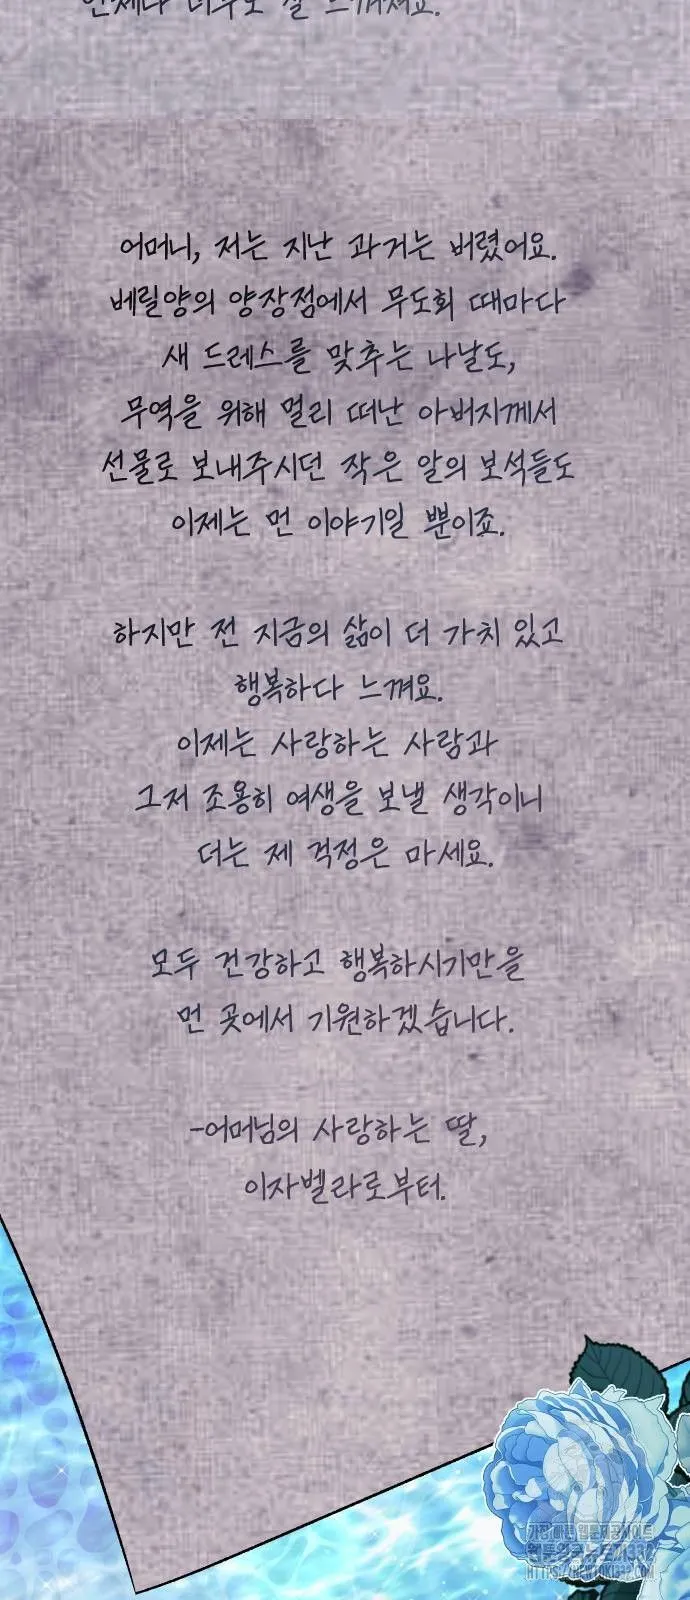 언제나 너무도 잘 느껴져요.
어머니, 저는 지난 과거는 버렸어요.
베릴양의 양장점에서 무도회 때마다
새 드레스를 맞추는 나날도,
무역을 위해 멀리 떠난 아버지께서
선물로 보내주시던 작은 알의 보석들도
이제는 먼 이야기일 뿐이죠.
하지만 전 지금의 삶이 더 가치 있고
행복하다 느껴요.
이제는 사랑하는 사람과
그저 조용히 여생을 보낼 생각이니
더는 제 걱정은 마세요.
모두 건강하고 행복하시기만을
먼 곳에서 기원하겠습니다.
-어머님의 사랑하는 딸,
이자벨라로부터.
가장 빠른 웹툰제공사이트